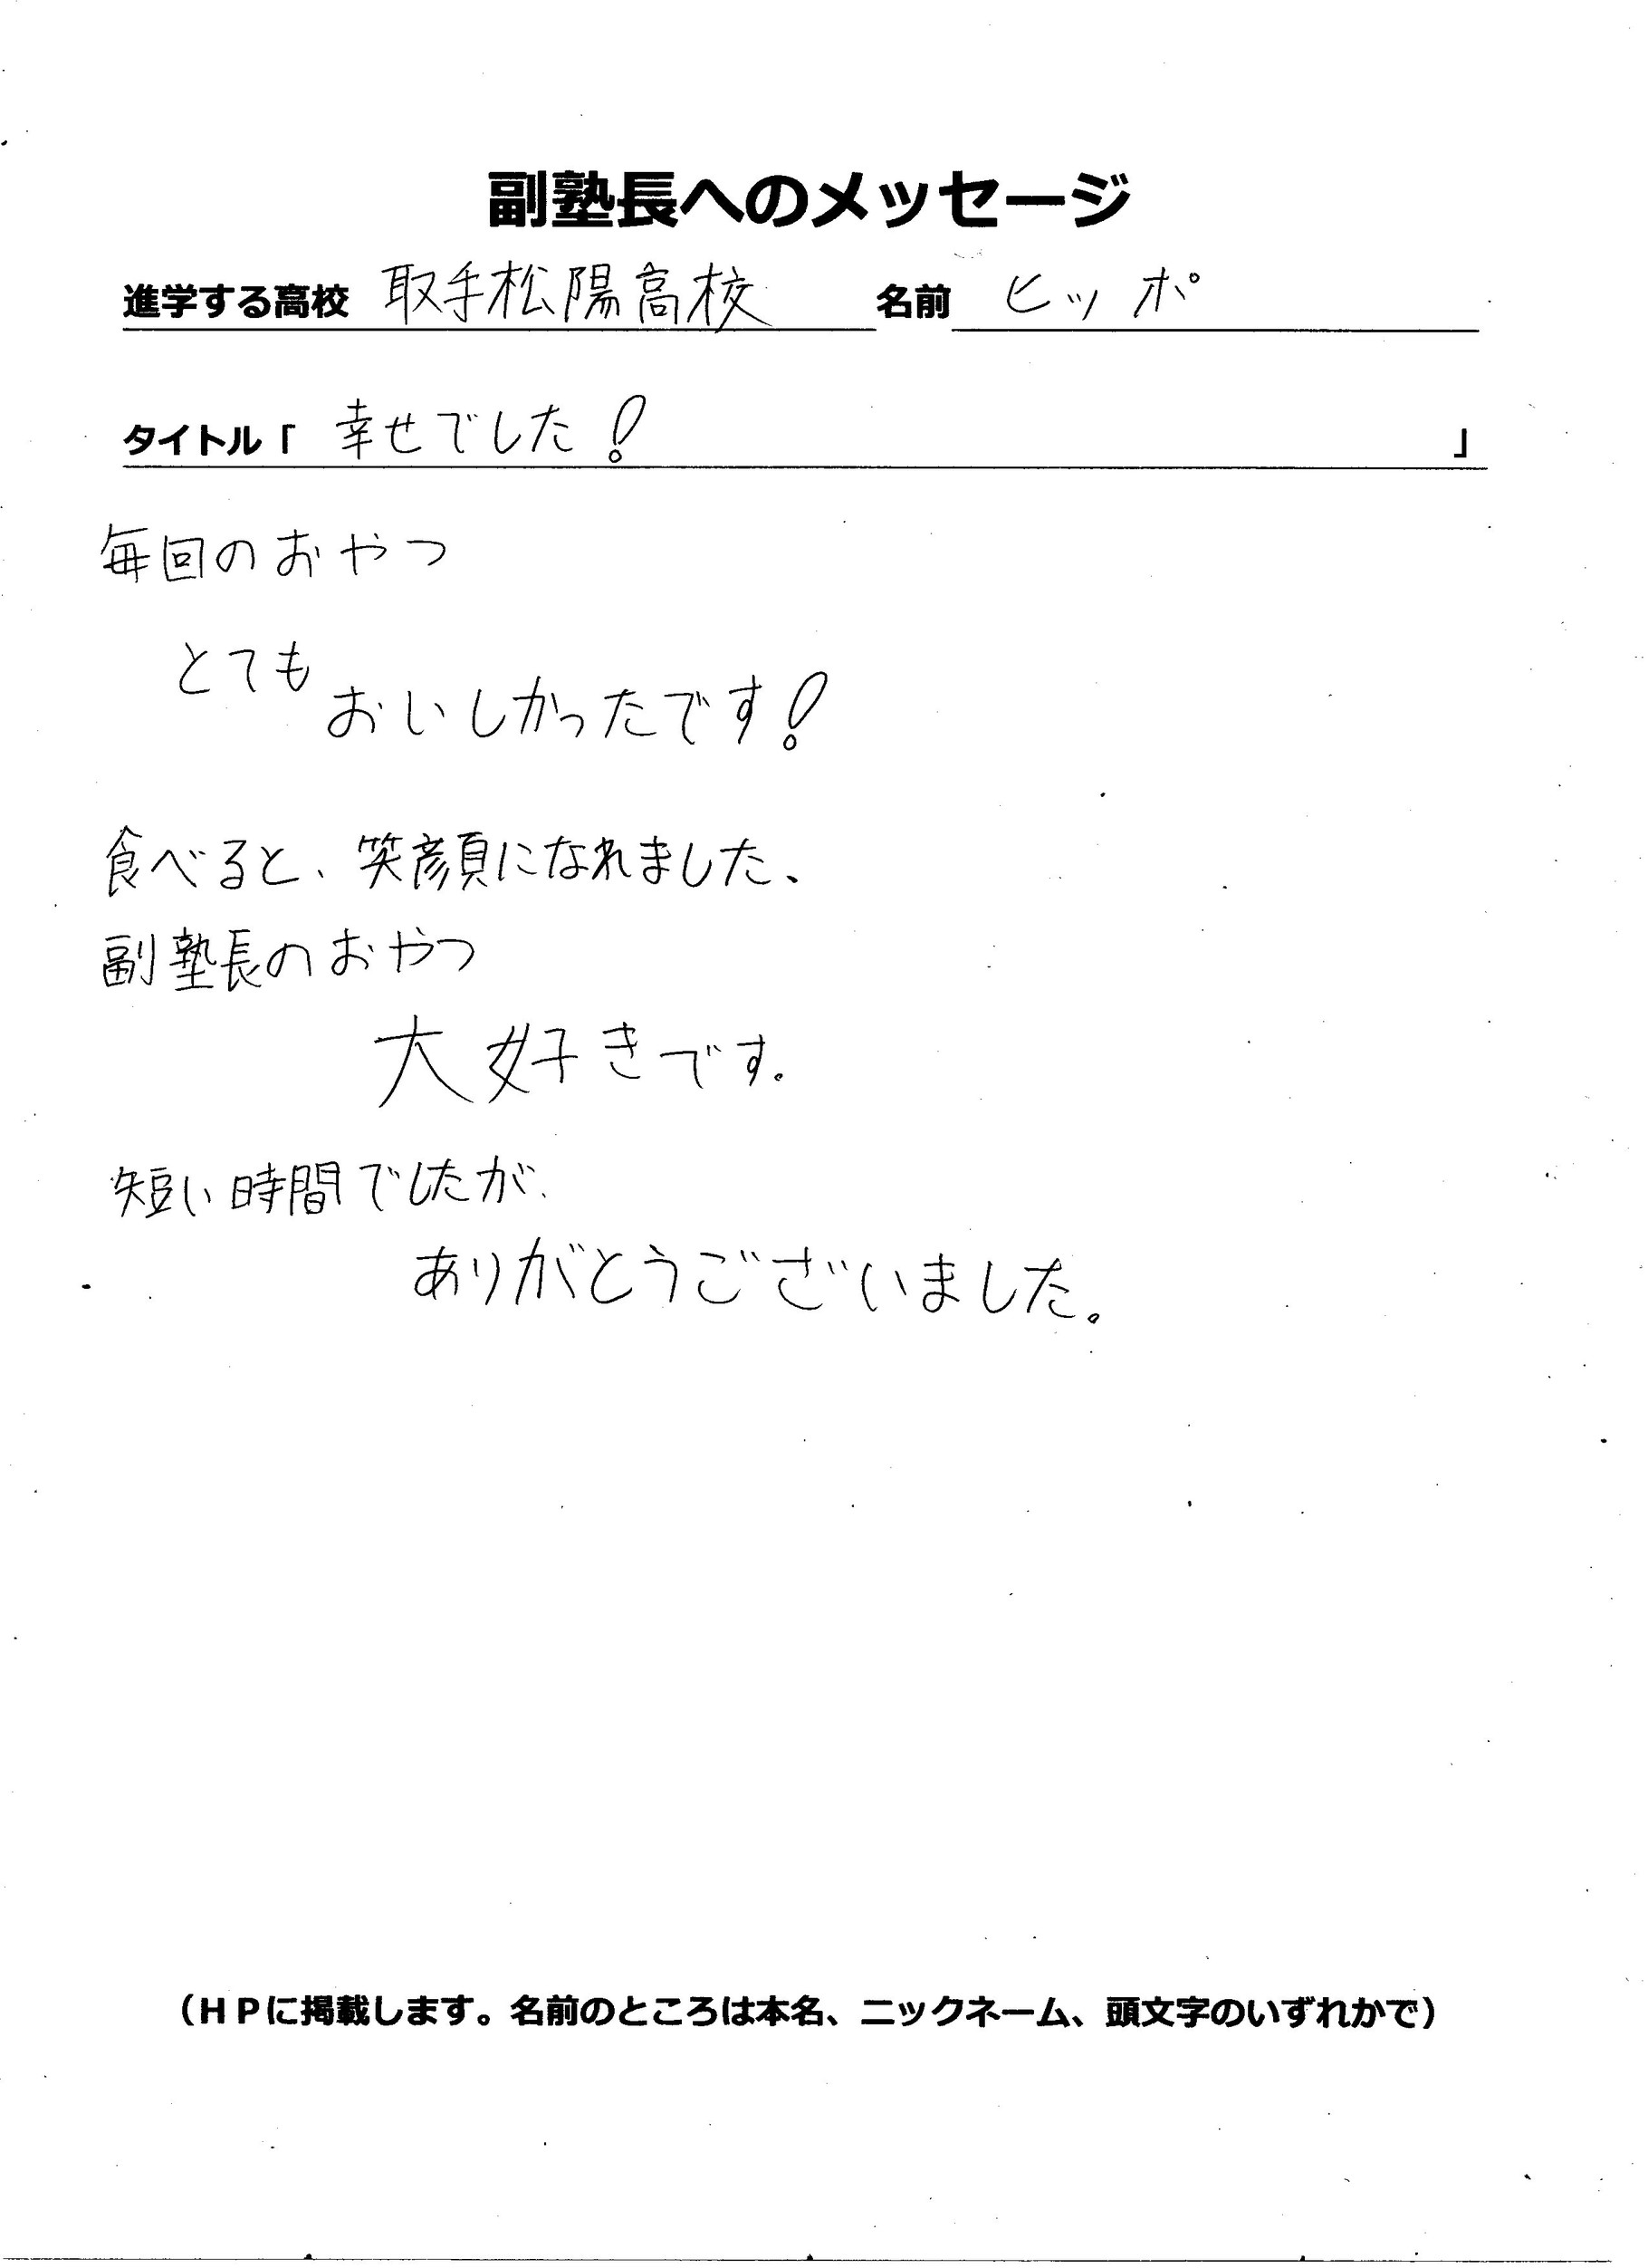 副塾長へのメッセージ
進学する高校 取手松陽高校 名前 ヒッポ
タイトル「 幸せでした! 」
毎回のおやつ
とても
おいしかったです!
食べると、笑顔になれました、
副塾長のおやつ
大好きです.
短い時間でしたが、
ありがとうございました。
(HPに掲載します。名前のところは本名、ニックネーム、頭文字のいずれかで)